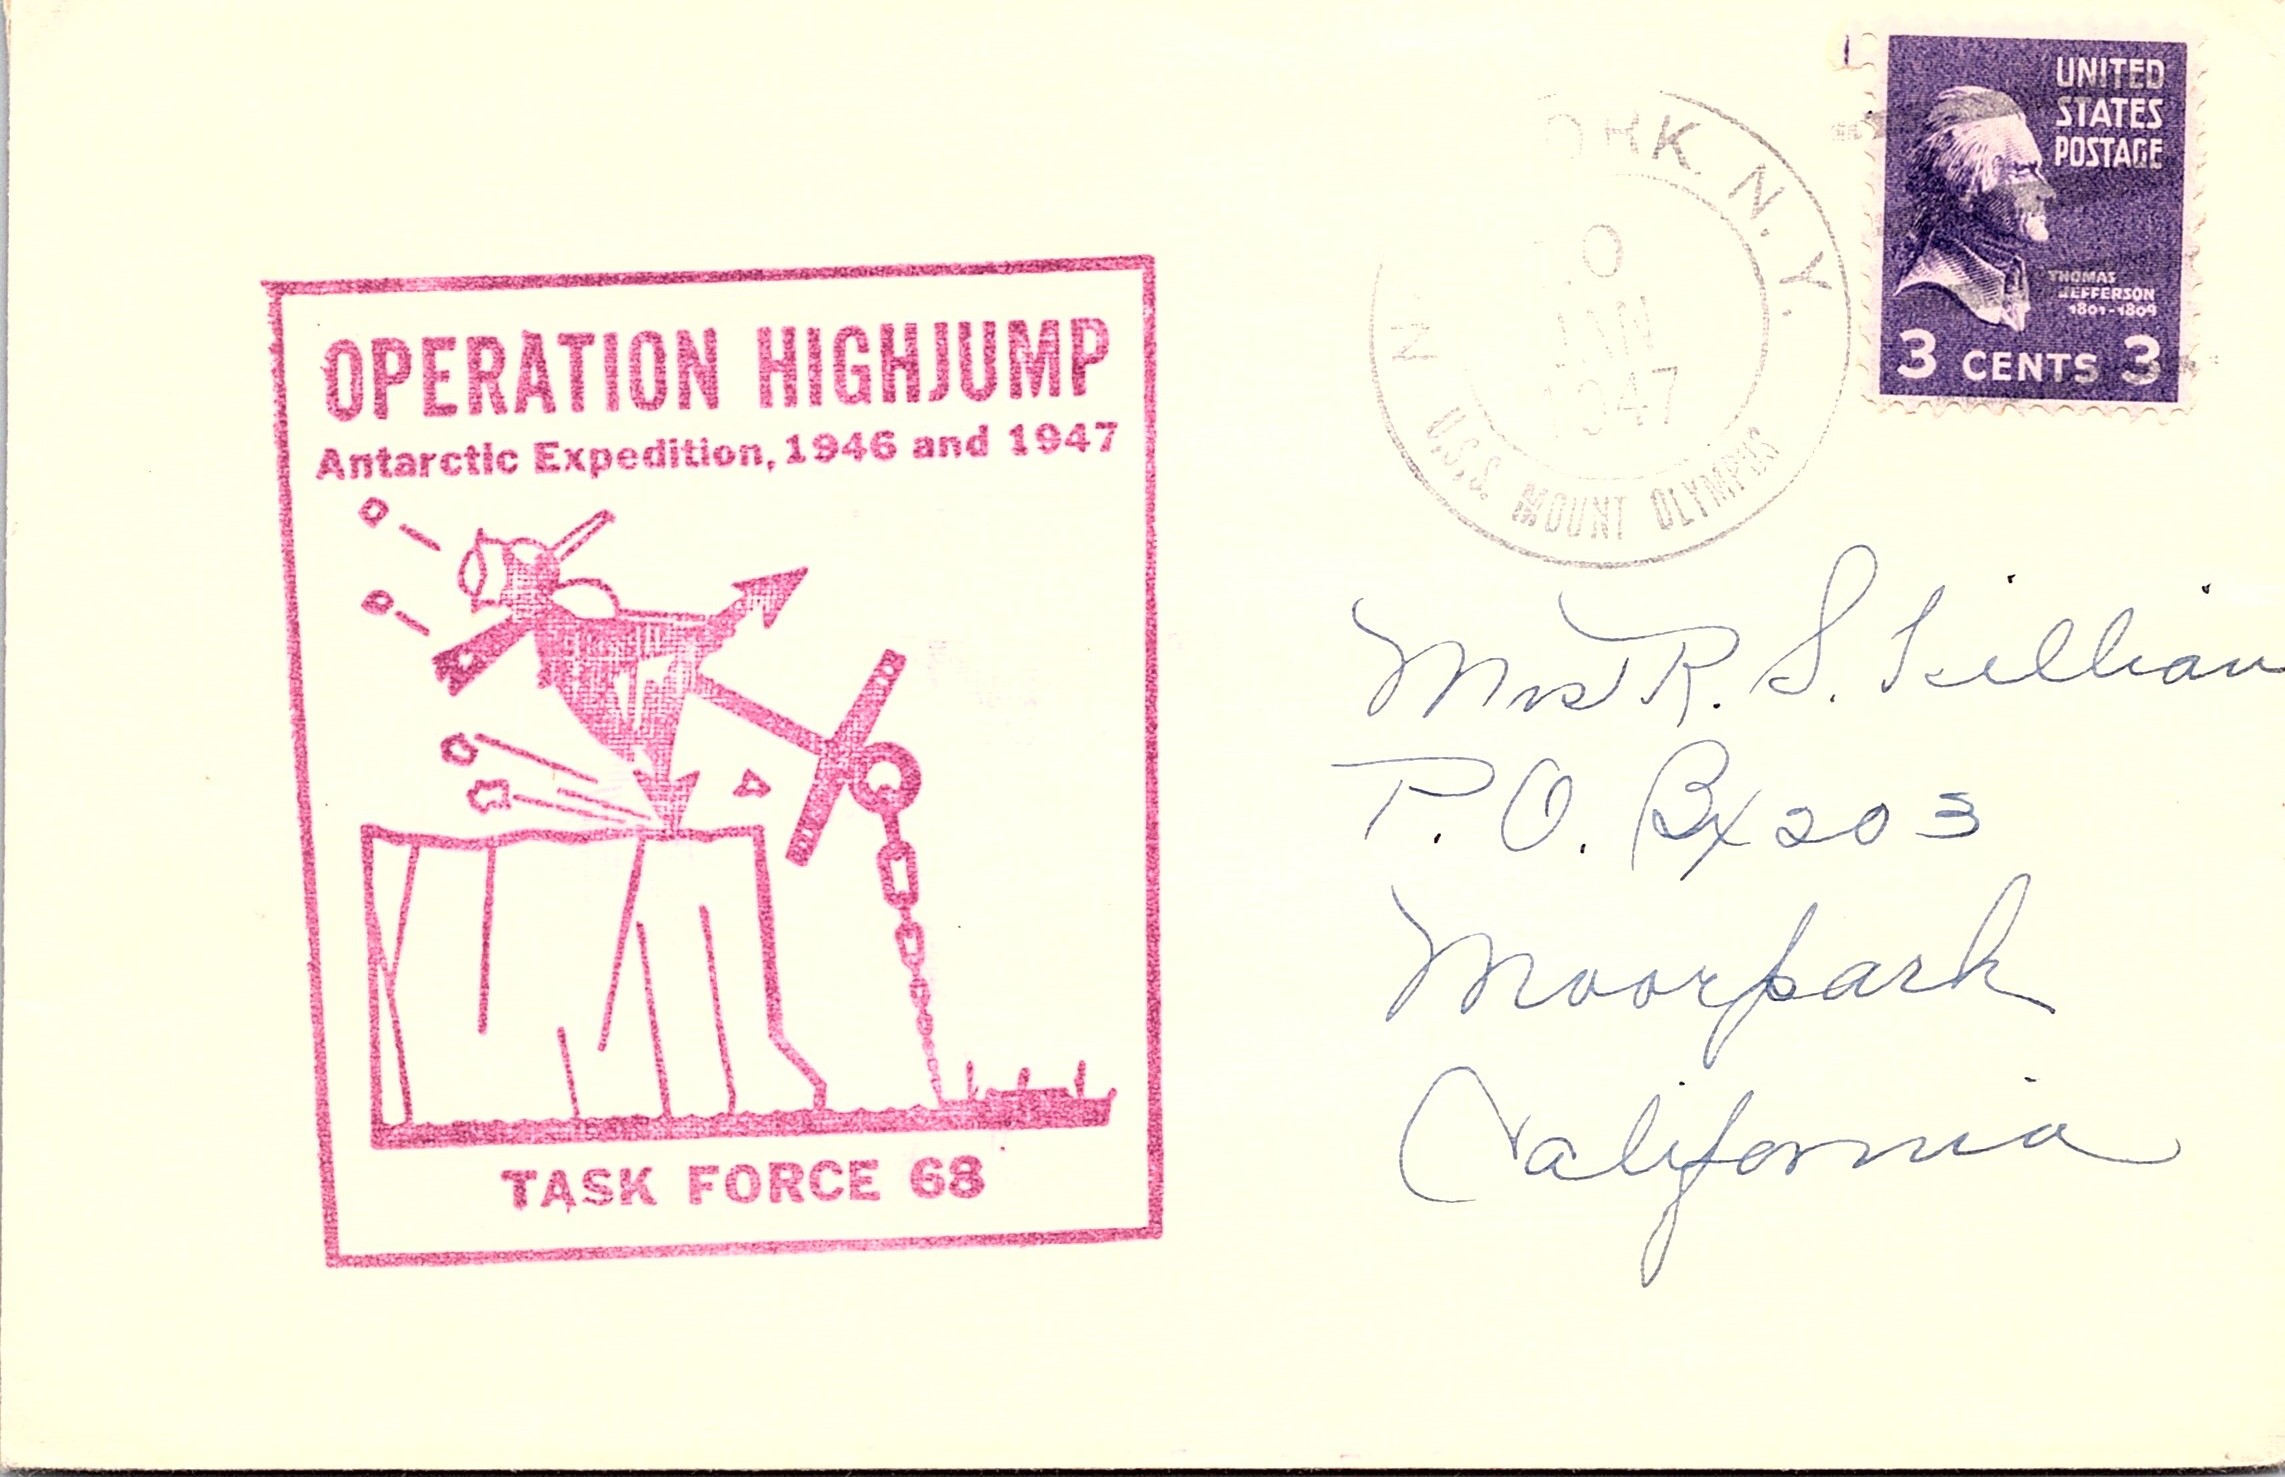 OPERATION HIGHJUMP
Antarctic Expedition, 1946 and 1947
TASK FORCE 68
N ORK. N.Y.
JAN
1947
U.S.S. MOUNT OLYMPUS
UNITED
STATES
POSTAGE
THOMAS
JEFFERSON
1801-1809
3 CENTS 3
Mrs R. S.
P. O. Bx 203
Moorpark
California